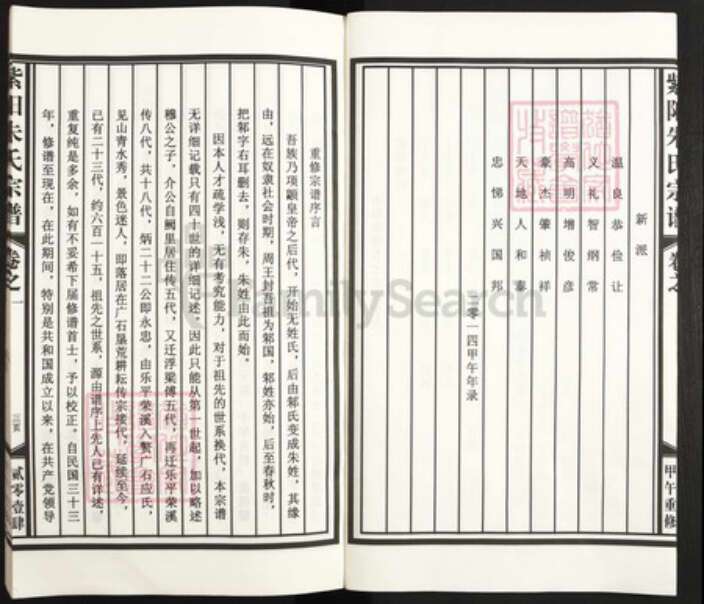 紫阳朱氏宗谱
卷之一
甲午重修
新派
温良恭俭让
义礼智纲常
高明增俊彦
豪杰肇祯祥
天地人和泰
忠悌兴国邦
二零一四甲午年录
重修宗谱序言
吾族乃项颛皇帝之后代，开始无姓氏，后由邾氏变成朱姓，其缘
由，远在奴隶社会时期，周王封吾祖为邾国，邾姓亦始，后至春秋时，
把邾字右耳删去，则存朱，朱姓由此而始。
因本人才疏学浅，无有考究能力，对于祖先的世系换代，本宗谱
无详细记载只有四十世的详细记述，因此只能从第一世起，加以略述
穆公之子，介公自阙里居住传五代，又迁浮梁傅五代，再迁乐平荣溪
传八代，共十八代，炳二十二公即永忠，由乐平荣溪入赘广石应氏，
见山青水秀，景色迷人，即落居在广石垦荒耕耘传宗接代，延续至今，
已有二十三代，约六百一十五，祖先之世系，源由谱序上先人已有详述，
重复纯是多余，如有不妥希下届修谱首士，予以校正。自民国三十三
年，修谱至现在，在此期间，特别是共和国成立以来，在共产党领导
紫阳朱氏宗谱
卷之一
贰零壹肆
FamilySearch